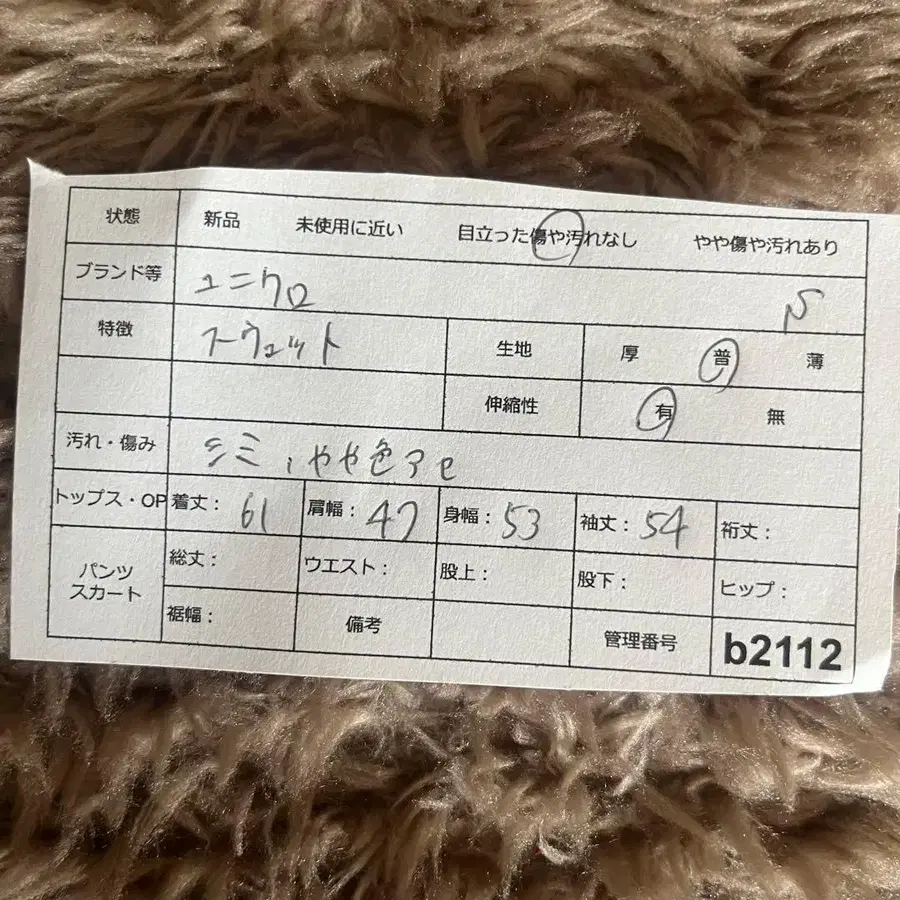 状態 新品 未使用に近い 目立った傷や汚れなし やや傷や汚れあり
ブランド等 ユニクロ S
特徴 スウェット 生地 厚 普 薄
伸縮性 有 無
汚れ・傷み シミ、やや色アセ
トップス・OP 着丈: 61 肩幅: 47 身幅: 53 袖丈: 54 裄丈:
パンツ スカート 総丈: ウエスト: 股上: 股下: ヒップ:
裾幅: 備考 管理番号 b2112